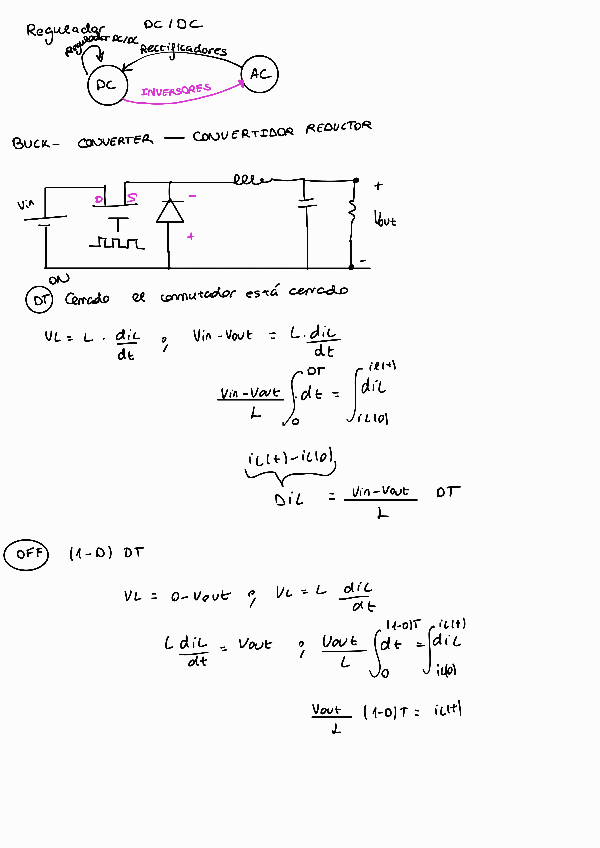 Regulador DC/DC
Regulador DC/DC
Rectificadores
DC
AC
INVERSORES
BUCK- CONVERTER — CONVERTIDOR REDUCTOR
Vin
D S
-
+
+
Vout
-
ON
DT Cerrado el conmutador está cerrado
VL = L · diL/dt ; Vin-Vout = L·diL/dt
Vin-Vout/L ∫₀^DT dt = ∫_iL(0)^iL(t) diL
iL(t)-iL(0)
DiL = Vin-Vout/L DT
OFF (1-D) DT
VL = 0-Vout ; VL = L diL/dt
L diL/dt = Vout ; Vout/L ∫₀^(1-D)T dt = ∫_iL(0)^iL(t) diL
Vout/L (1-D)T = iL(t)